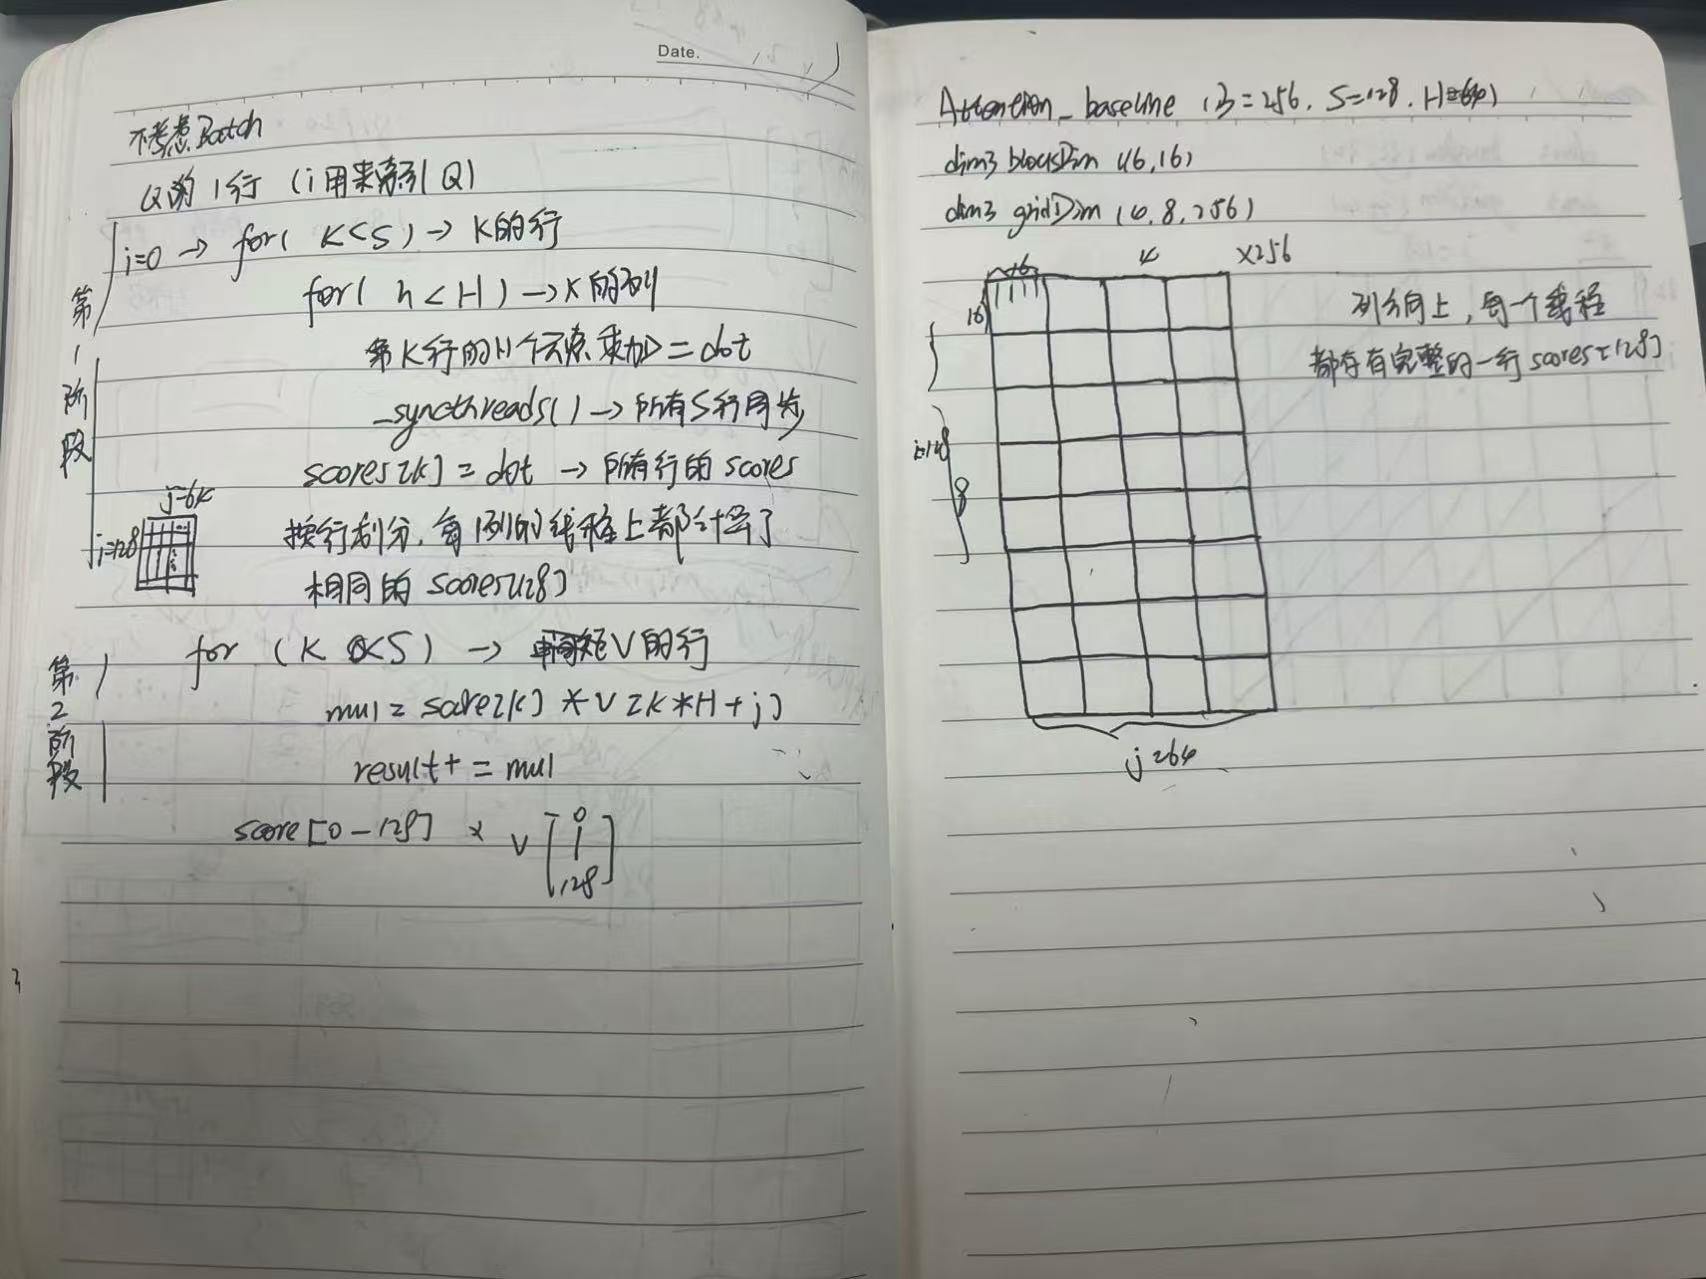 Date.
不考虑Batch
Q的1行 (i用来索引Q)
第1阶段
i=0 → for( K<S) → K的行
for( h<H) → K的列
第K行的H个元素乘加 = dot
_syncthreads() → 所有S行同步
scores[k] = dot → 所有行的 scores
j=64
i=128
按行划分,每1列的线程上都计算了
相同的 scores[128]
第2阶段
for (K <S) → V的行
mul = score[k] * V[k*H+j]
result += mul
score[0-128] × V [0 | 128]
Attention_baseline (B=256, S=128, H=64)
dim3 blockDim (16,16)
dim3 gridDim (4,8,256)
16
4
×256
16
i=128
8
j=64
列方向上,每一个线程
都存有完整的一行scores[128]